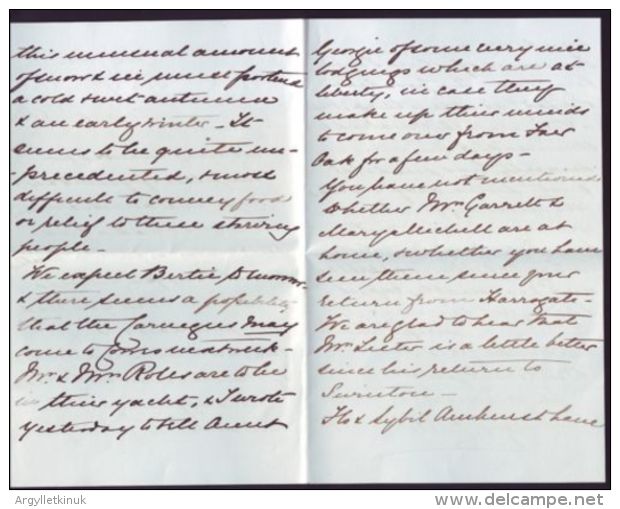 this unusual amount
of snow & ice must portend
a cold & wet autumn
& an early winter - It
seems to be quite un-
-precedented, & most
difficult to convey food
or relief to these starving
people -
We expect Bertie tomorrow
& there seems a possibility
that the Carnegies may
come to Cowes next week -
Mr. & Mrs. Roles are to be
in their yacht, & I wrote
yesterday to tell Aunt
Georgie of some very nice
lodgings which are at
liberty, in case they
make up their minds
to come over from Fair
Oak for a few days -
You have not mentioned
whether Mrs. Garrett &
Mary Michell are at
home, & whether you have
seen them since your
return from Harrogate -
We are glad to hear that
Mr. Lister is a little better
since his return to
Swinton -
Flo & Sybil Amherst have
Argylletkinuk
www.delcampe.net